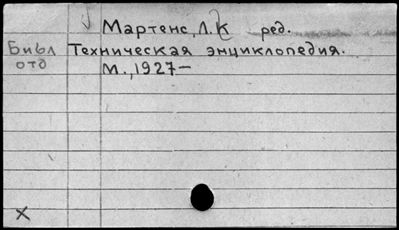 Мартенс, Л.К ред.
Библ Техническая энциклопедия.
отд М., 1927—
x